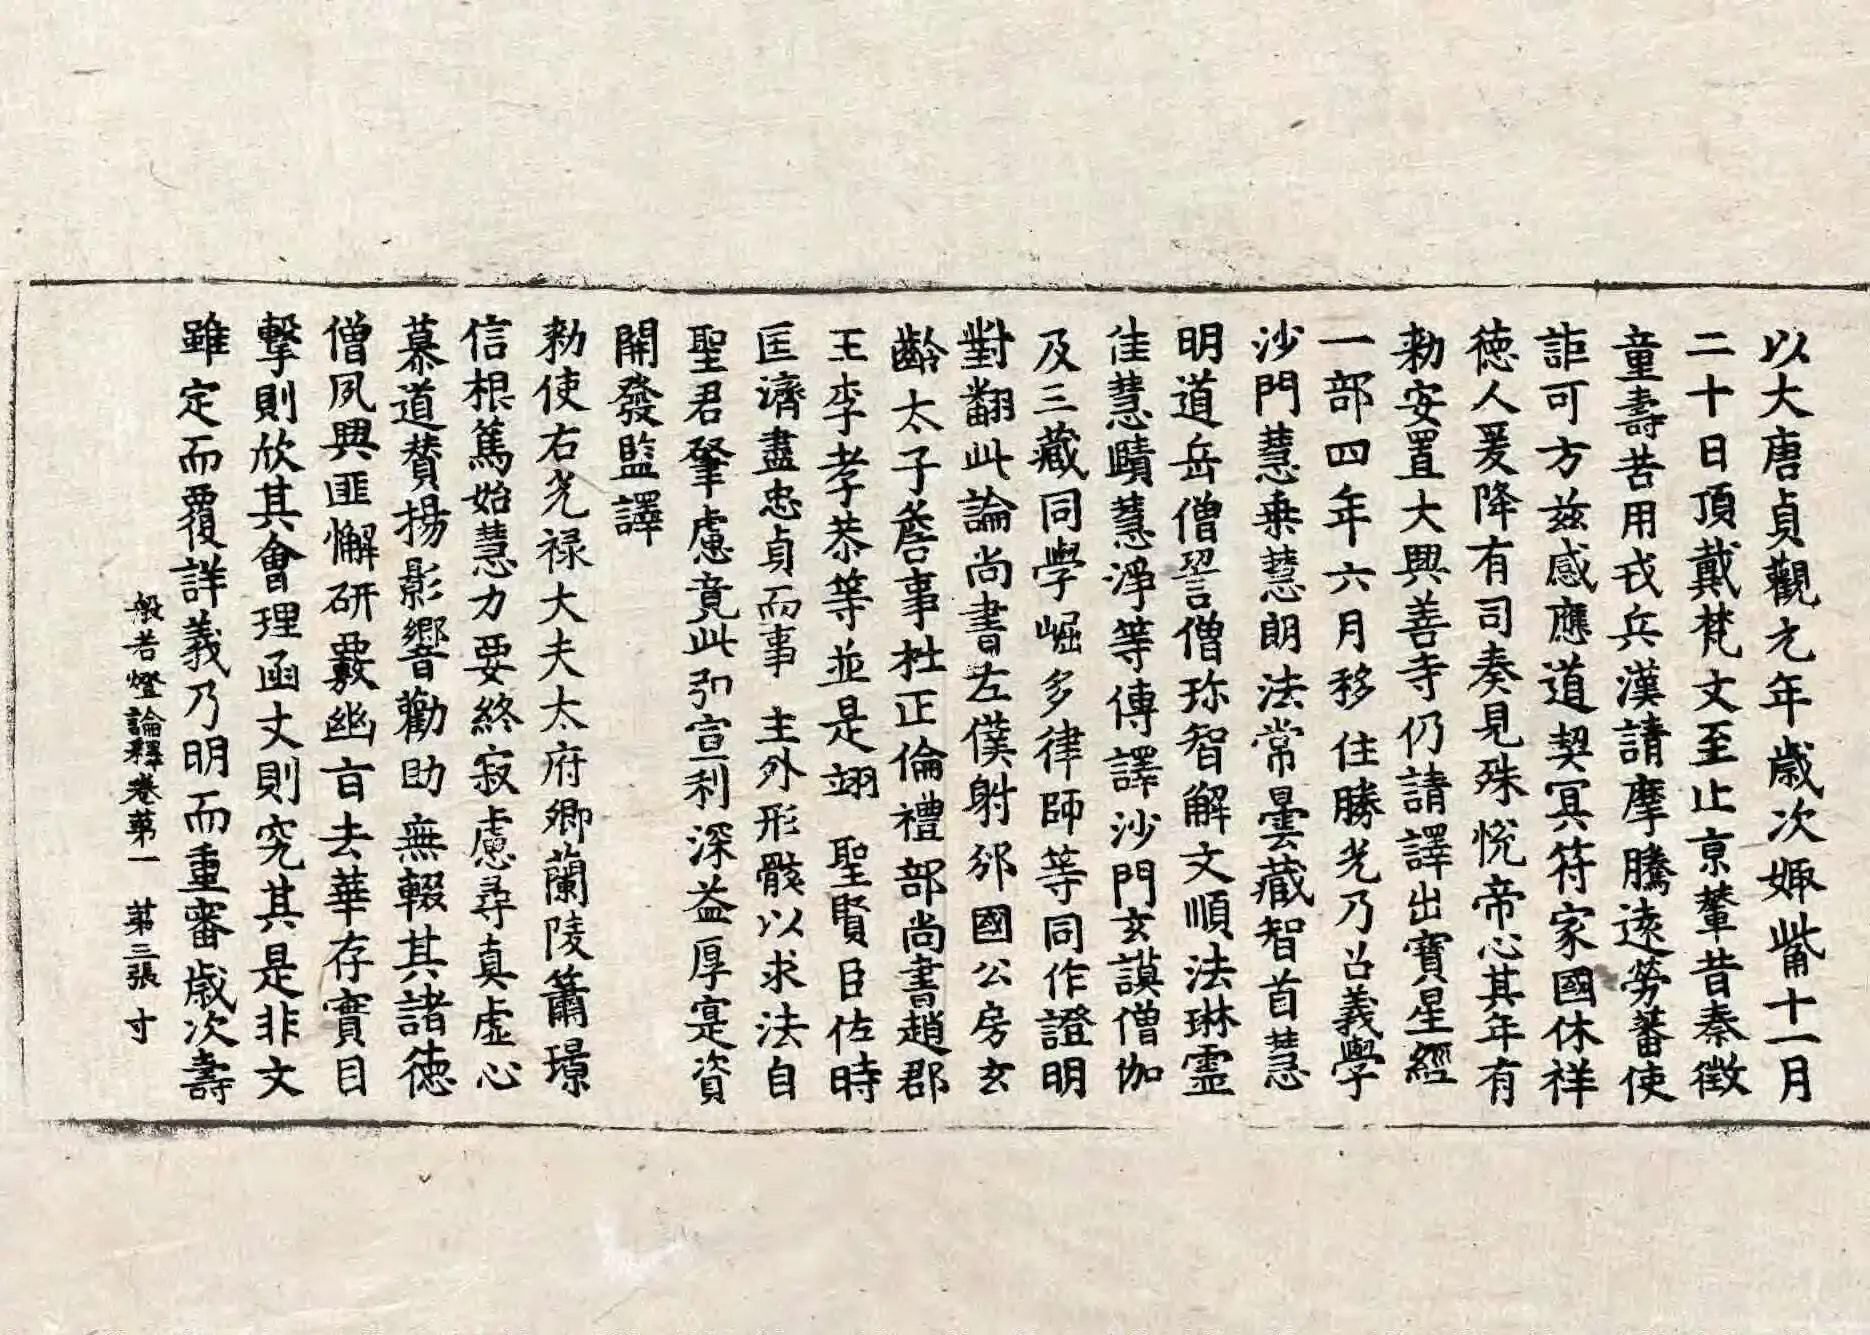 以大唐貞觀元年歲次娵觜十一月
二十日頂戴梵文至止京輦昔秦徵
童壽苦用戎兵漢請摩騰遠勞蕃使
詎可方兹感應道契冥符家國休祥
徳人爰降有司奏見殊悅帝心其年有
勑安置大興善寺仍請譯出寶星經
一部四年六月移住勝光乃召義學
沙門慧乗慧朗法常曇藏智首慧
明道岳僧辯僧珎智解文順法琳靈
佳慧賾慧淨等傳譯沙門玄謨僧伽
及三藏同學崛多律師等同作證明
對翻此論尚書左僕射邠國公房玄
齡太子詹事杜正倫禮部尚書趙郡
王李孝恭等並是翊 聖賢臣佐時
匡濟盡忠貞而事 主外形骸以求法自
聖君肇慮竟此弘宣利深益厚寔資
開發監譯
勑使右光禄大夫太府卿蘭陵蕭璟
信根篤始慧力要終寂慮尋真虛心
慕道賛揚影響勸助無輟其諸徳
僧夙興匪懈研覈幽旨去華存實目
擊則欣其會理函丈則究其是非文
雖定而覆詳義乃明而重審歲次壽
般若燈論釋卷苐一 苐三張 寸